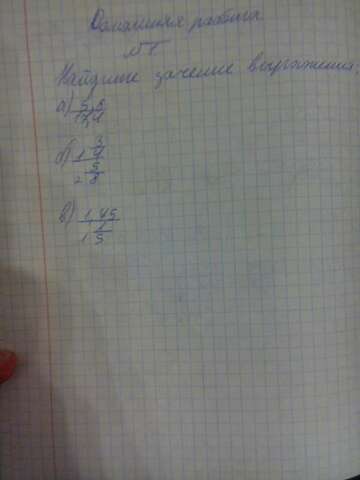 Домашняя работа
№1
Найдите зачение выражения:
а) 5,5
17,1
б) 1 3/4
2 5/8
в) 1,45
1 1/5